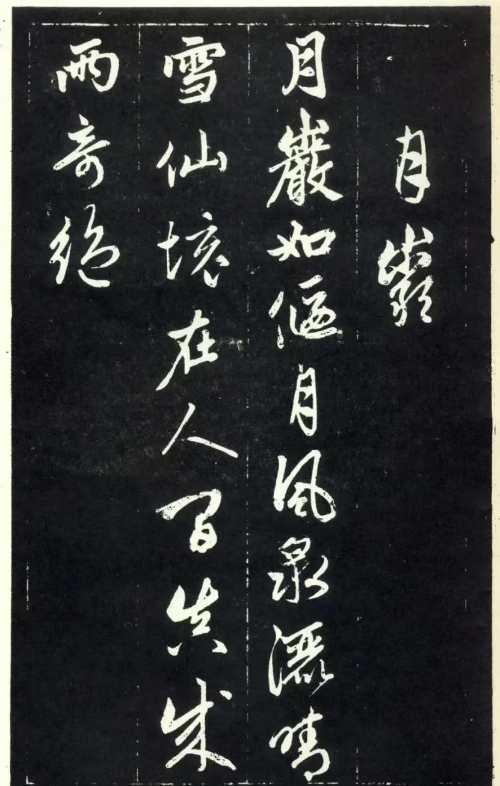 月巖
月巖如偃月風泉灑晴
雪仙境在人間真成
兩奇絕